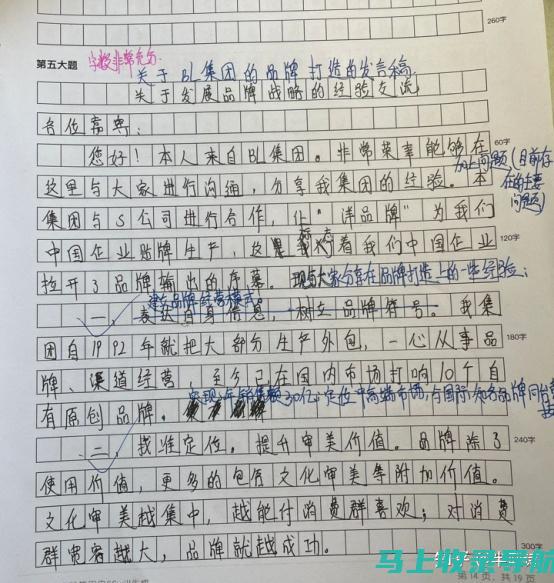 260字
第五大题
字数非常充分
关于BL集团的品牌打造的发言稿
关于发展品牌战略的经验交流
各位嘉宾：
您好！本人来自BL集团。非常荣幸能够在
60字
加上问题（目前存在的主要问题）
这里与大家进行沟通，分享我集团的经验。本
集团与S公司进行合作，让“洋品牌”为我们
中国企业贴牌生产，这标志着我们中国企业
120字
拉开了品牌输出的序幕。现与大家分享在品牌打造上的一些经验：
建立品牌经营模式。
一，表达自身信息，树立品牌符号。我集
团自1992年就把大部分生产外包，一心从事品
180字
牌、渠道经营，至今已在国内市场打响10个自
有原创品牌。
实现年销售额30亿；定位中高端市场，与国际知名品牌同台竞技
二，找准定位。提升审美价值。品牌除了
240字
使用价值，更多的包含文化审美等附加价值。
文化审美越集中，越能付消费群喜欢；对消费
群宽容越大，品牌就越成功。
300字
第14页，共19页
马上收录导航